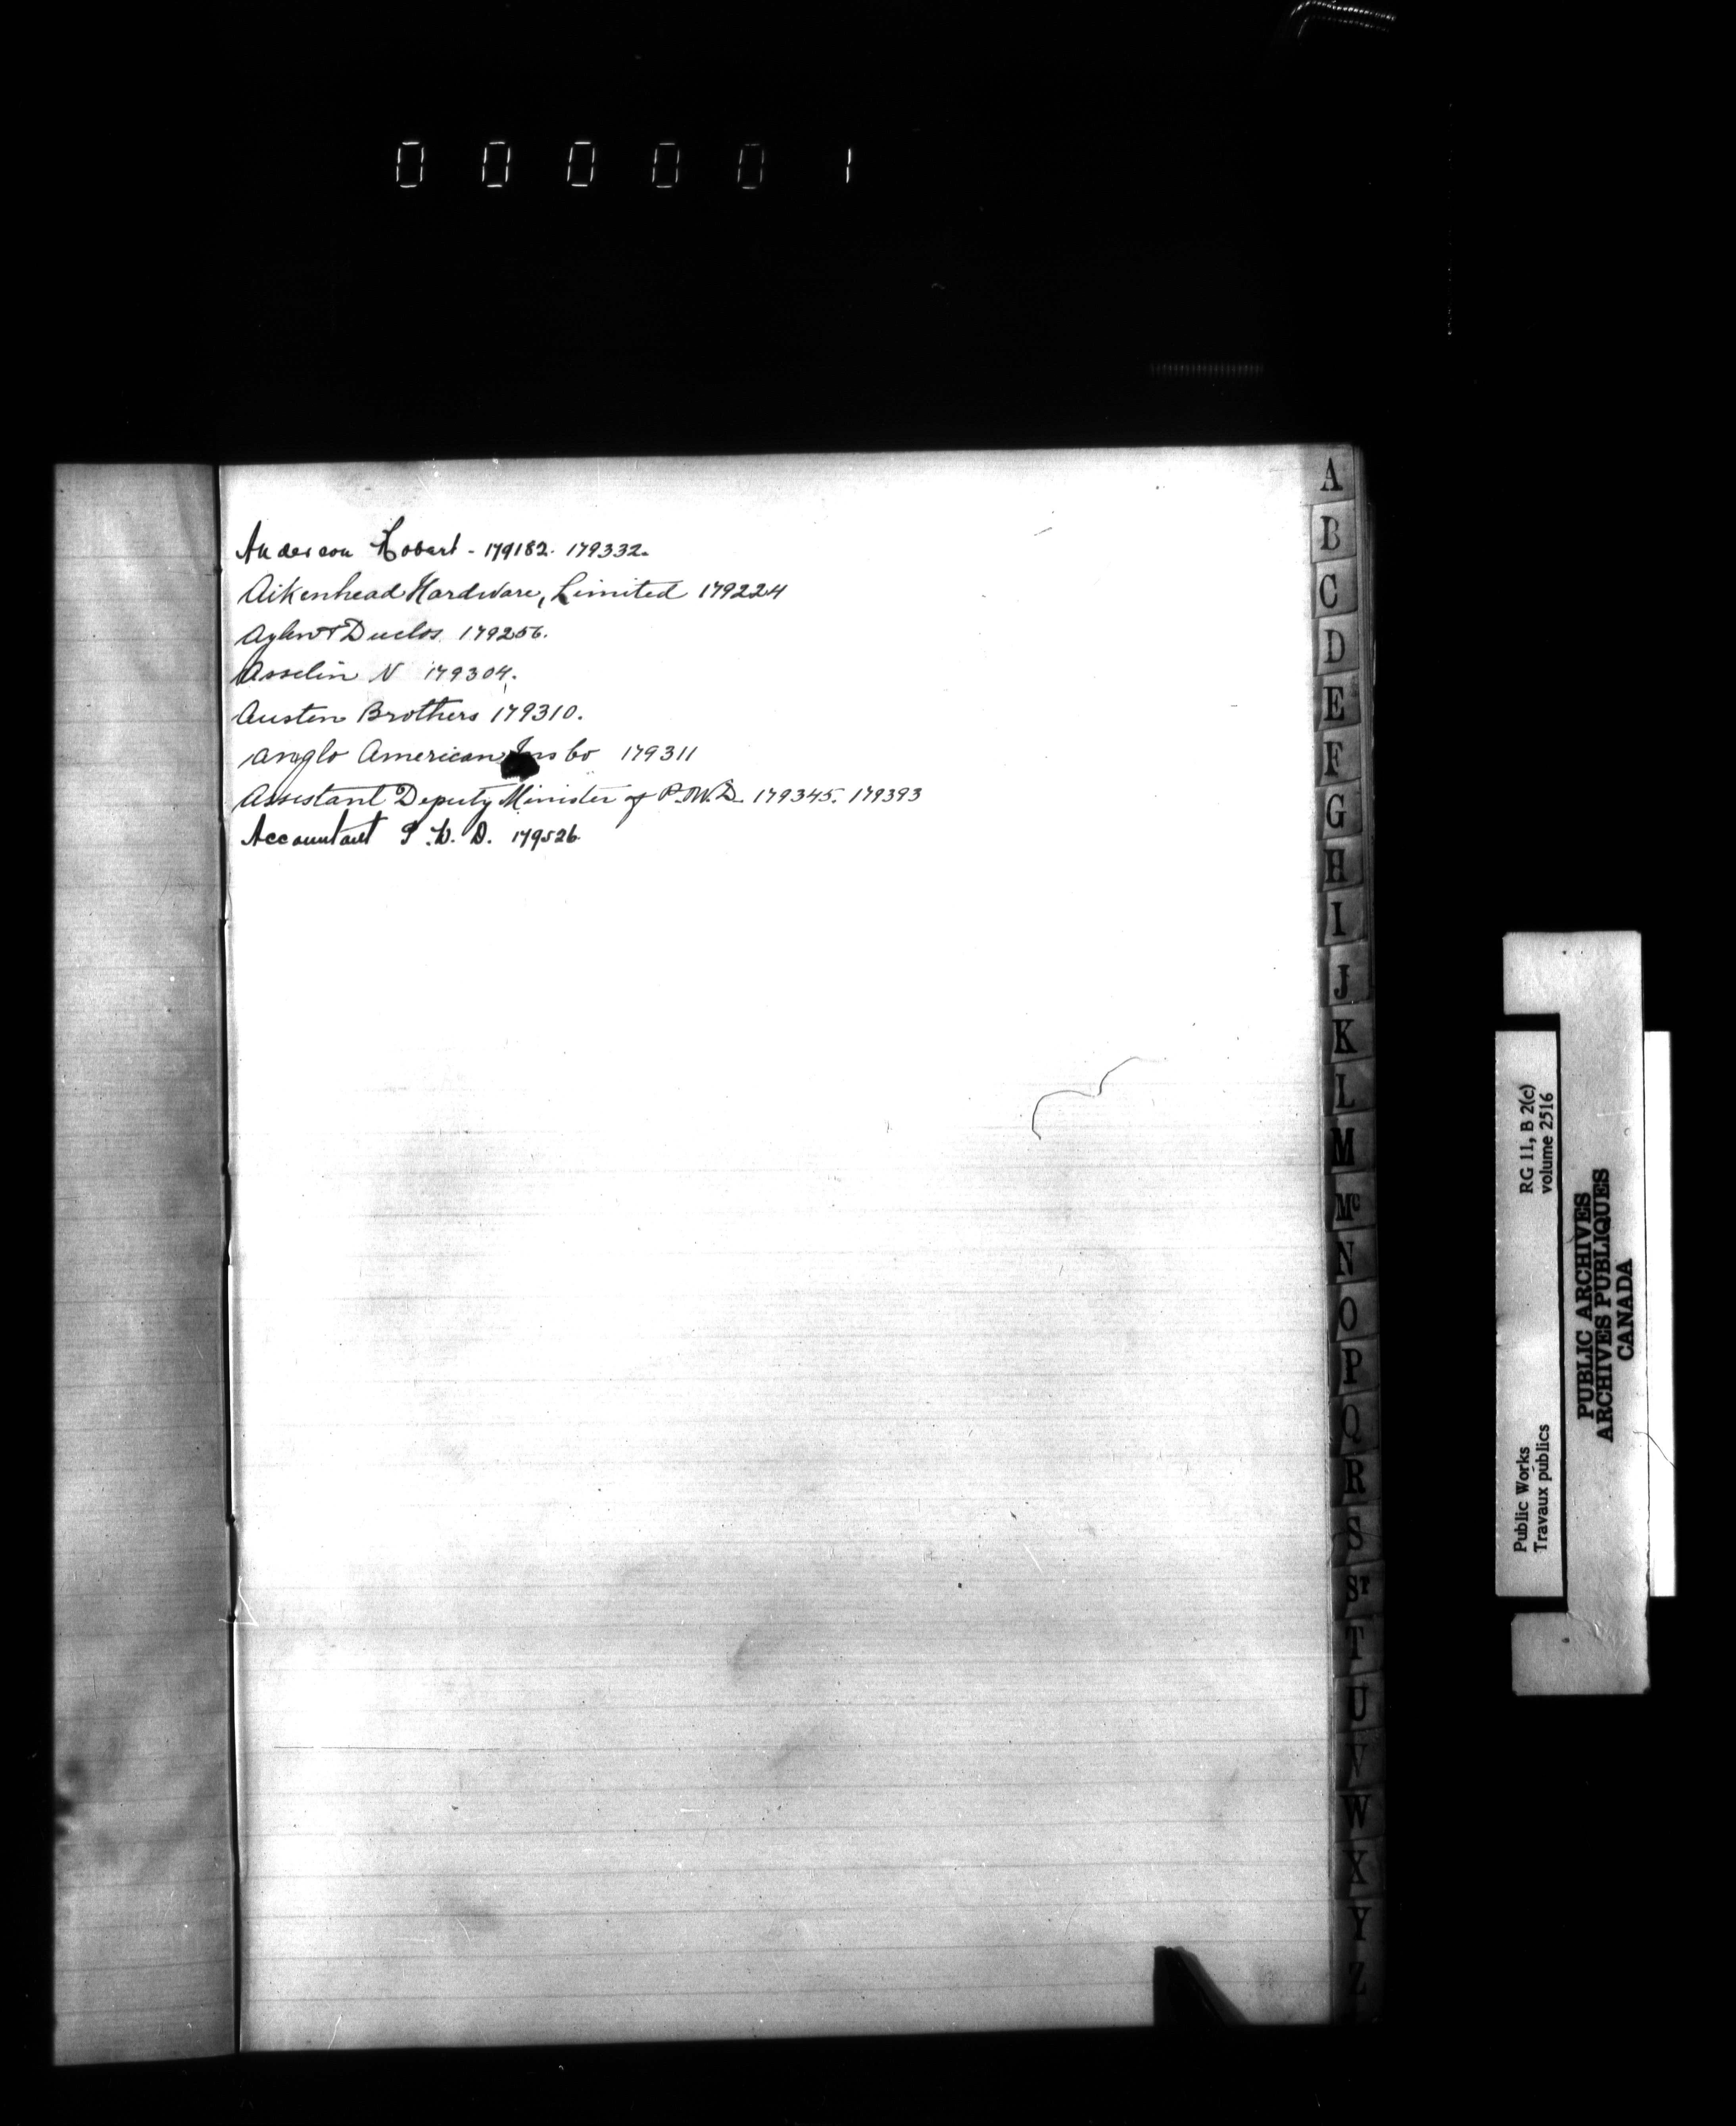 000001
Anderson Hobart - 179182. 179332.
Aikenhead Hardware, Limited 179224
Aylen & Duclos 179256.
Asselin N 179304.
Austen Brothers 179310.
Anglo American Ins Co 179311
Assistant Deputy Minister of P.W.D. 179345. 179393
Accountant P.W.D. 179526
A
B
C
D
E
F
G
H
I
J
K
L
M
Mc
N
O
P
Q
R
S
ST
T
U
V
W
X
Y
Z
Public Works RG 11, B 2(c)
Travaux publics volume 2516
PUBLIC ARCHIVES
ARCHIVES PUBLIQUES
CANADA